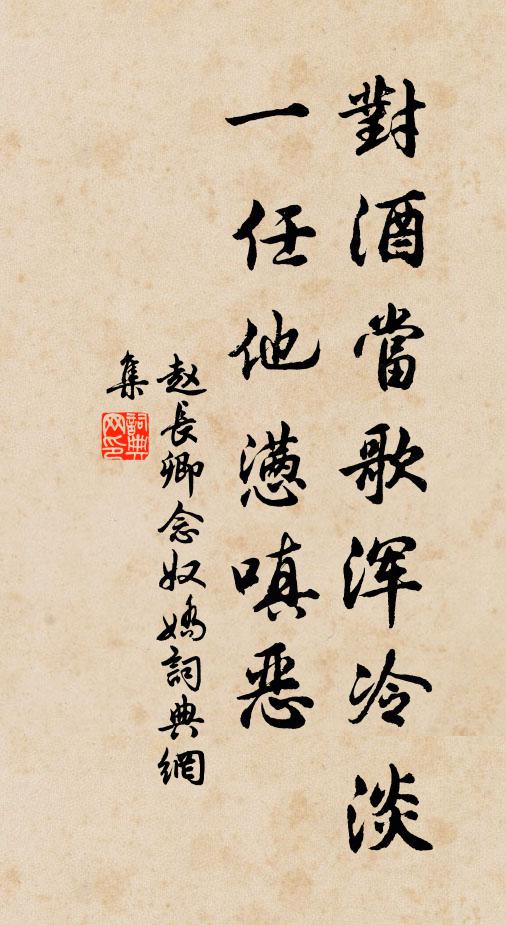 對酒當歌浑冷淡
一任他懑嗔恶
赵長卿念奴嬌詞典網
集
詞典
网印